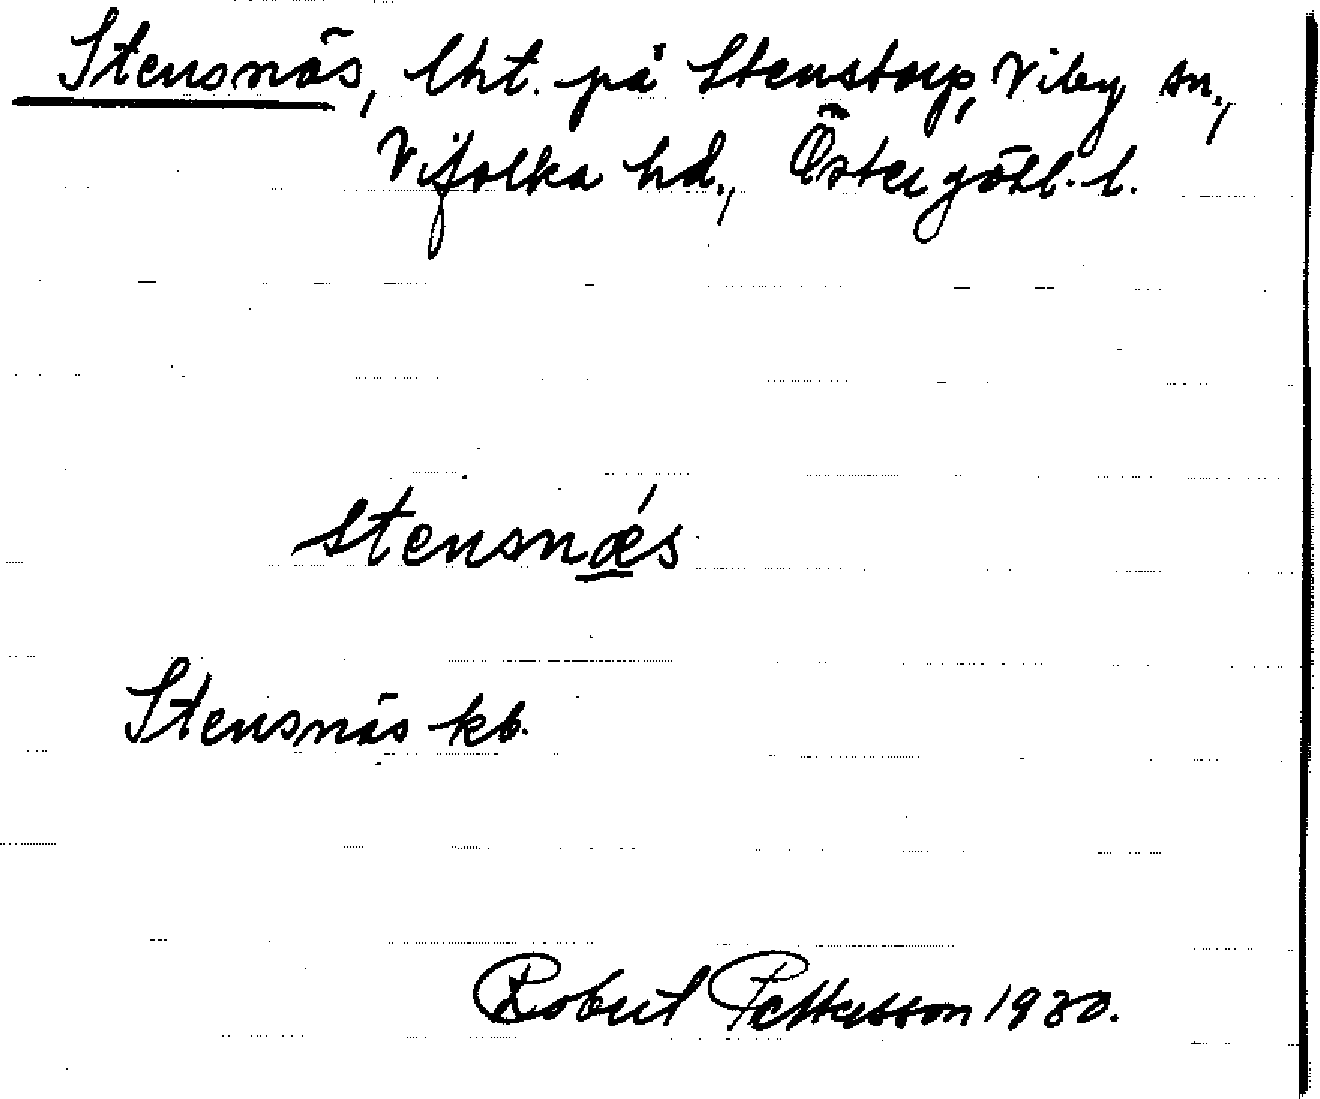 Stensnäs, lht. på Stenstorp, Viby sn.,
Vifolka hd., Östergötl. l.
stensnǽs
Stensnäs kb.
Robert Pettersson 1930.